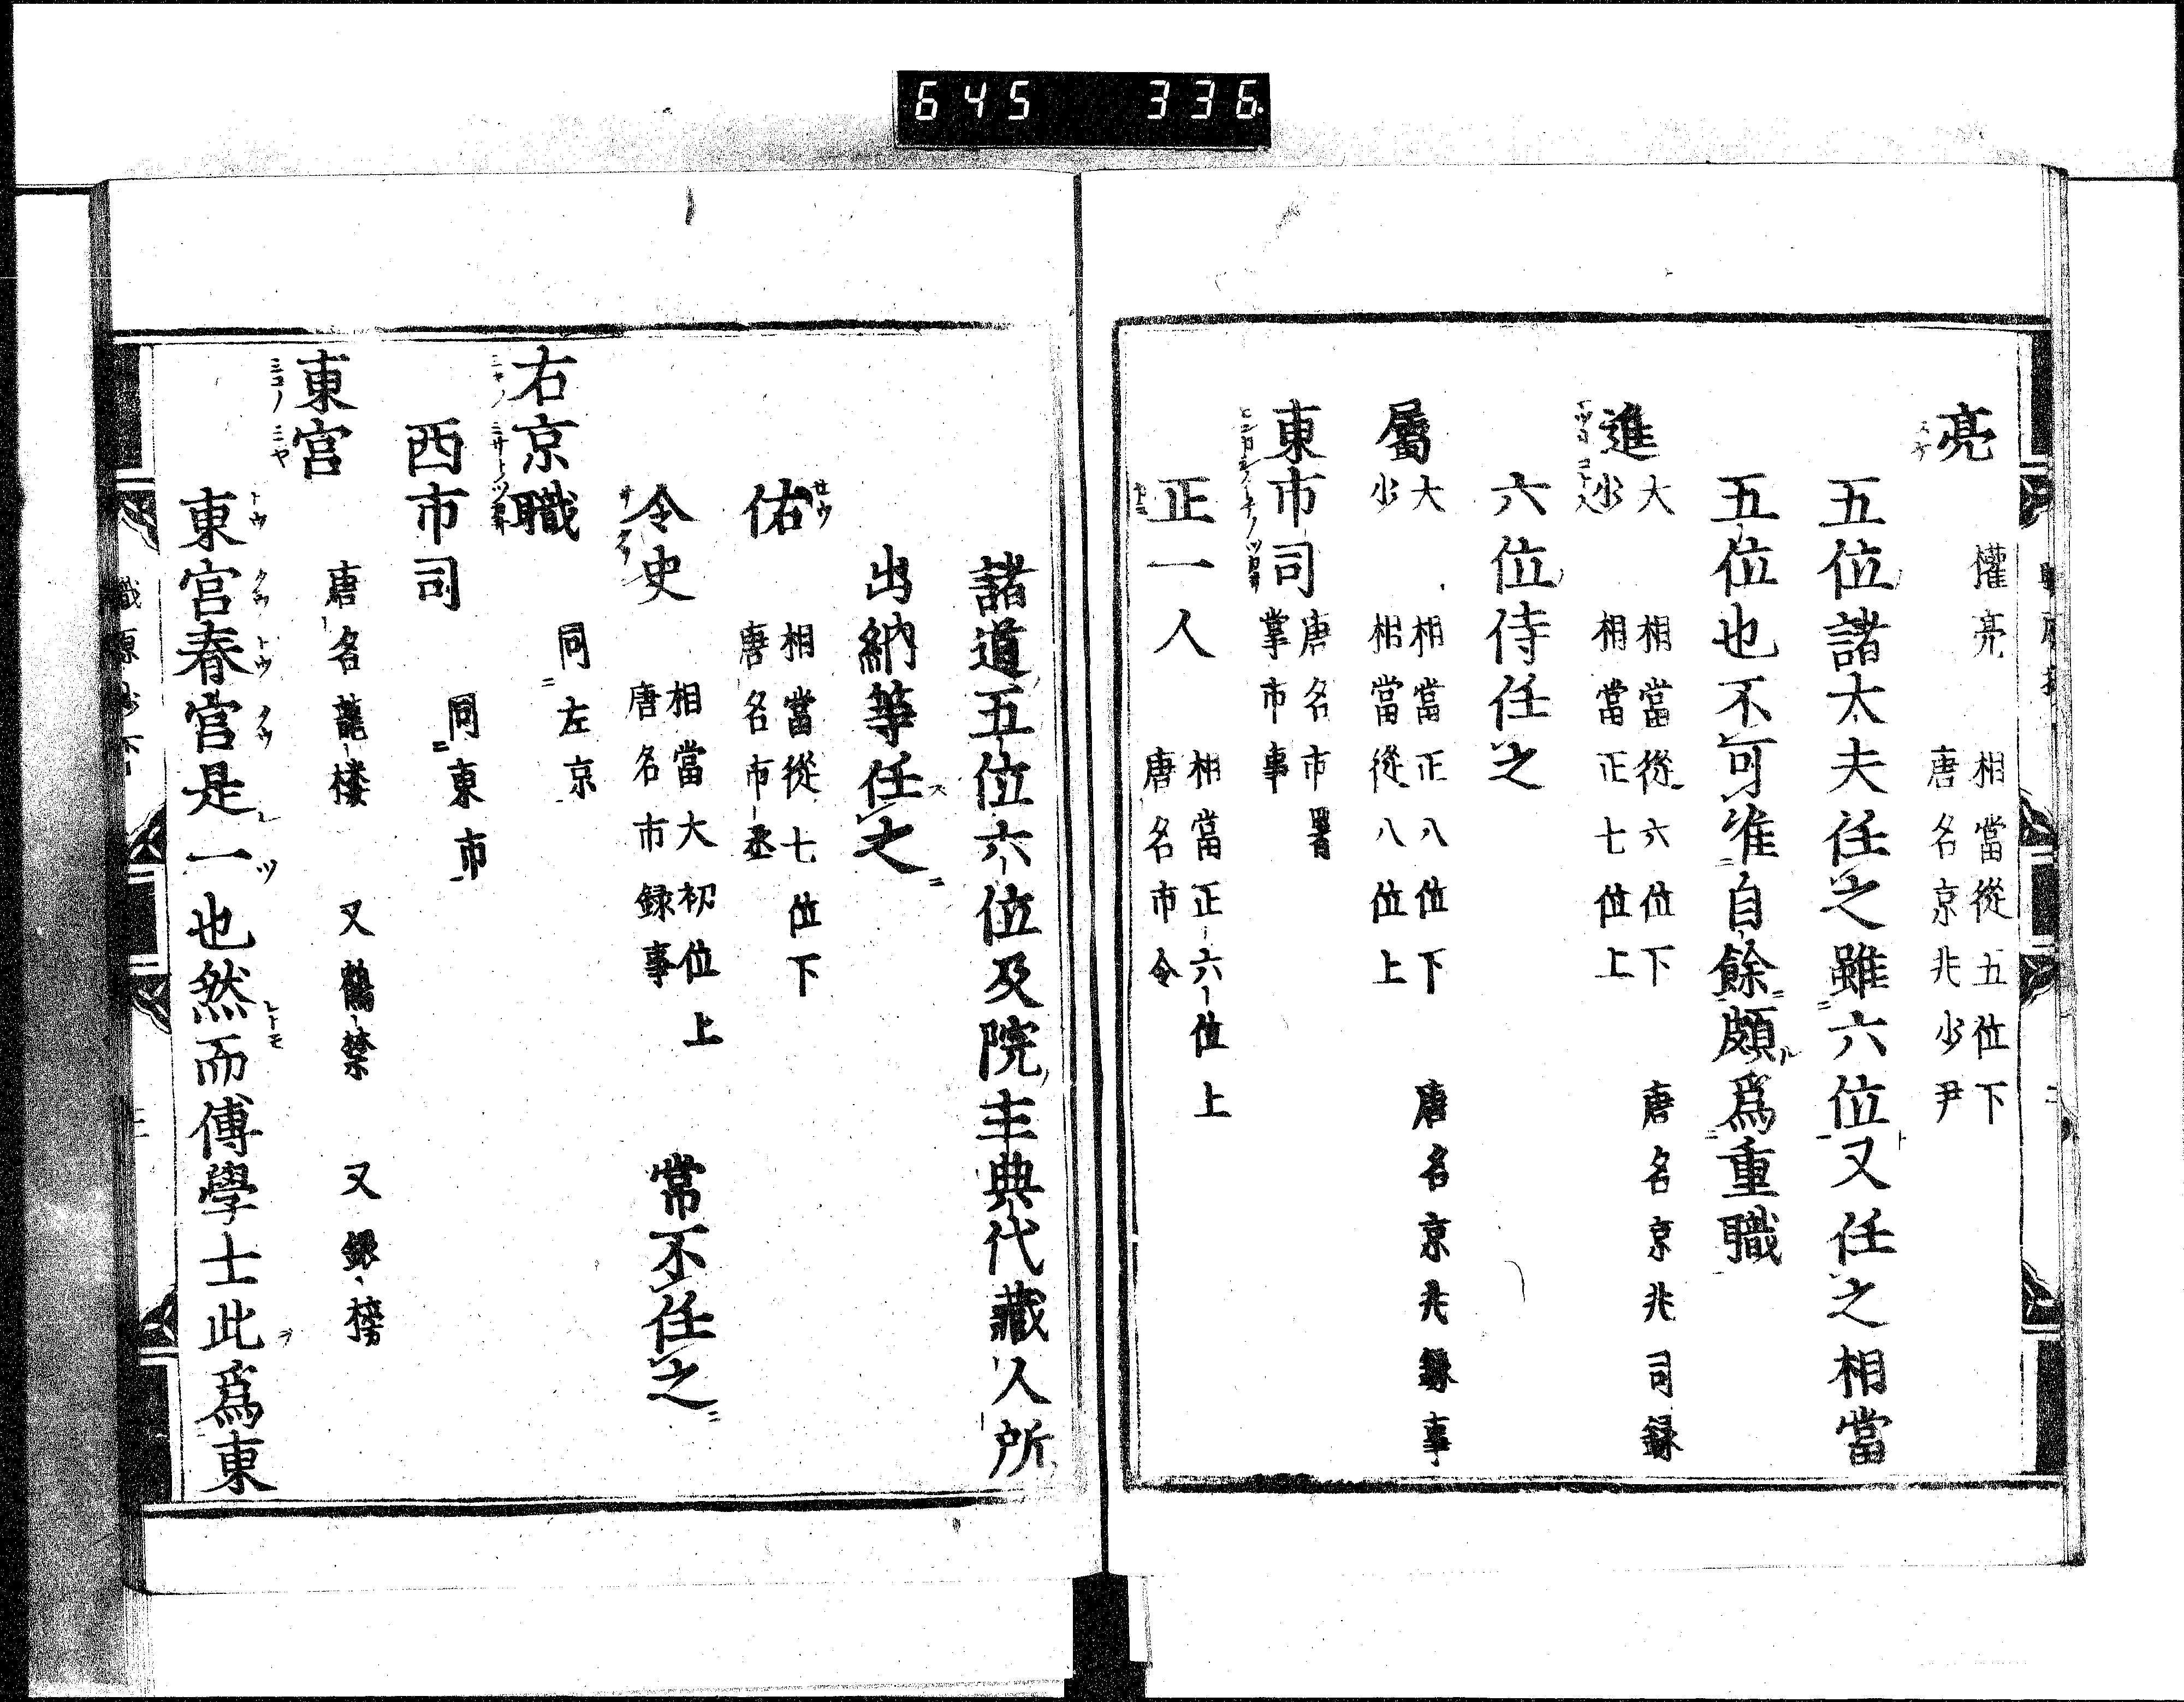 645 336
亮 權亮 相當從五位下
唐名京兆少尹
五位諸大夫任之雖六位又任之相當
五位也不可准自餘頗爲重職
進 大 相當從六位下 唐名京兆司録
少 相當正七位上
六位侍任之
屬 大 相當正八位下 唐名京兆録事
少 相當從八位上
東市司 唐名市署
掌市事
正一人 相當正六位上
唐名市令
諸道五位六位及院主典代藏人所
出納等任之
佑 相當從七位下
唐名市丞
令史 相當大初位上 常不任之
唐名市録事
右京職 同左京
西市司 同東市
東宮 唐名龍樓 又鶴禁 又銀榜
ミコノミヤ
東宮春宮是一也然而傅學士此爲東